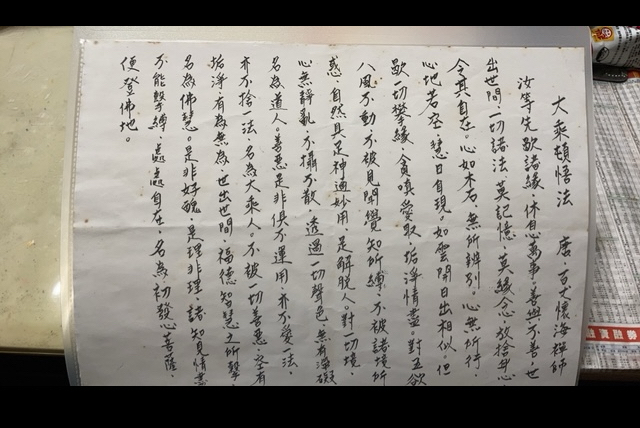 大乘頓悟法　唐．百丈懷海禪師
汝等先歇諸緣．休息萬事．善與不善．世
出世間．一切諸法．莫記憶．莫緣念．放捨身心．
令其自在．心如木石．無所辨別．心無所行．
心地若空．慧日自現．如雲開日出相似。但
歇一切攀緣．貪嗔愛取．垢淨情盡。對五欲
八風不動．不被見聞覺知所縛．不被諸境所
惑．自然具足神通妙用．是解脫人。對一切境．
心無靜亂．不攝不散．透過一切聲色．無有滯礙
名為道人。善惡是非俱不運用．亦不愛一法．
亦不捨一法．名為大乘人。不被一切善惡．空有
垢淨．有為無為．世出世間．福德智慧之所拘繫．
名為佛慧。是非好醜．是理非理．諸知見情盡
不能繫縛．處處自在．名為初發心菩薩．
便登佛地。
融資融券